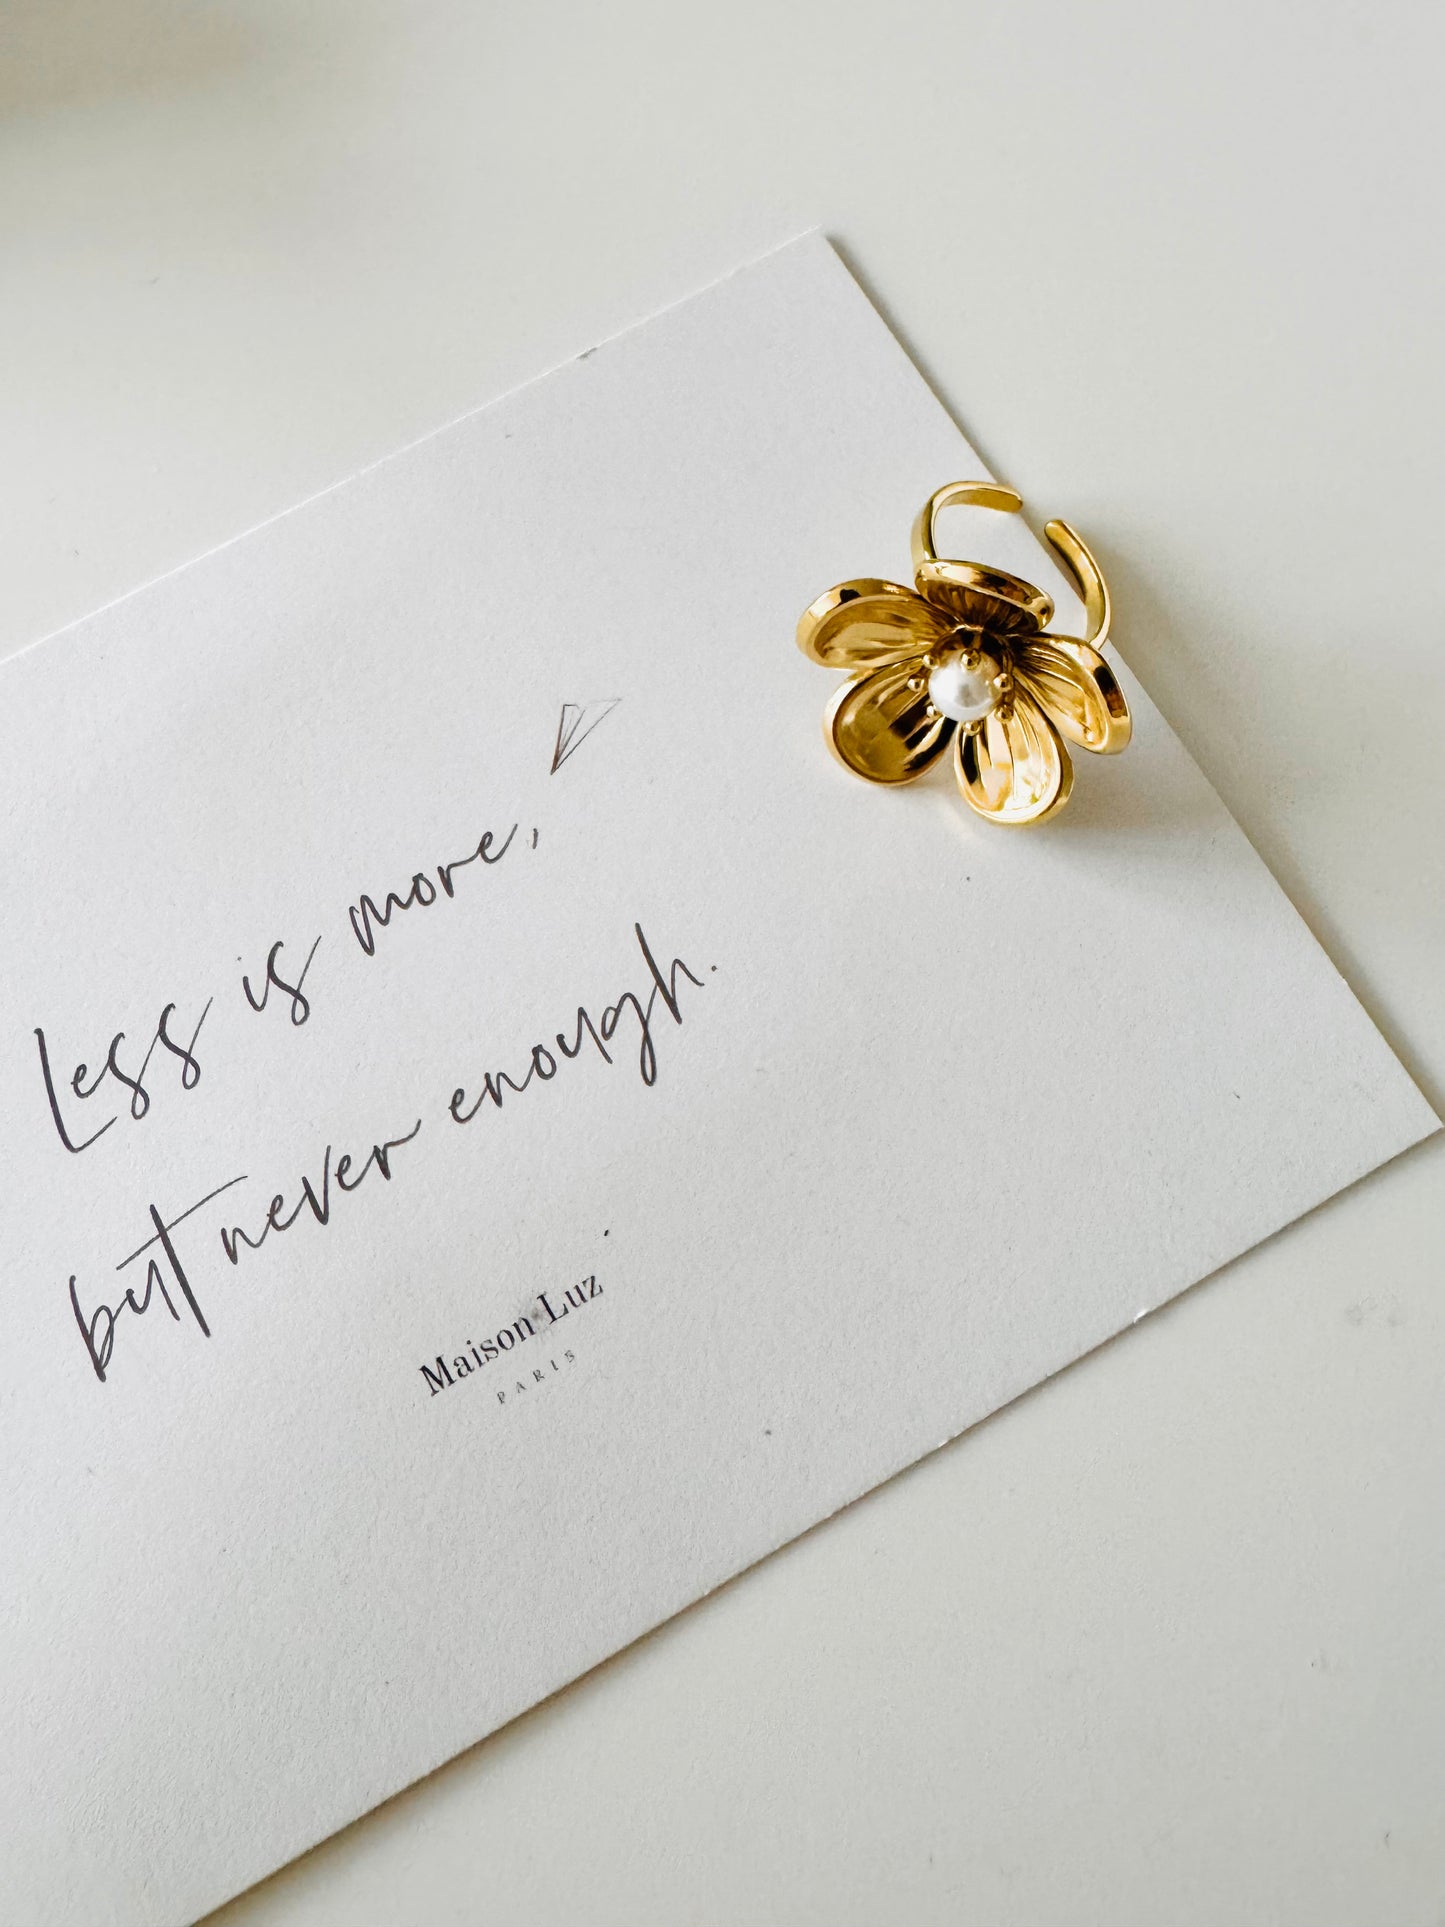 Less is more,
but never enough.
Maison Luz
PARIS